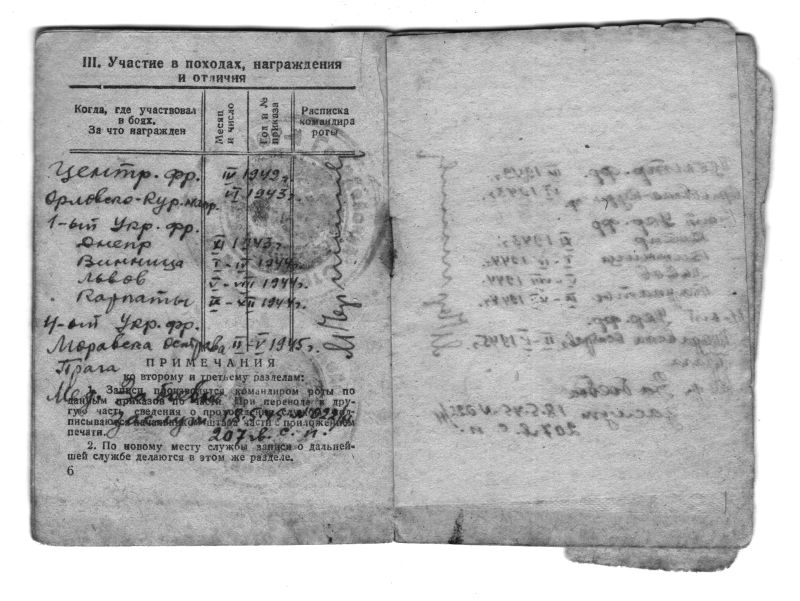 III. Участие в походах, награждения
и отличия
Когда, где участвовал
в боях.
За что награжден
Месяц
и число
Год и №
приказа
Расписка
командира
роты
Центр. фр. IV 1943г.
Орловско-Кур. напр. VI 1943г.
1-ый Укр. фр.
Днепр XI 1943г.
Винница I - III 1944г.
Львов 1944г.
Карпаты IX - XII 1944г.
4-ый Укр. фр.
Моравска Острава II - V 1945г.
Прага
ПРИМЕЧАНИЯ
ко второму и третьему разделам:
Мед. За боевые
заслуги 18.5.45 №022/н
207 гв. с. п.
1. Записи производятся командиром роты по
данным приказов по части. При переводе в дру-
гую часть сведения о прохождении службы под-
писываются начальником штаба части с приложением
печати.
2. По новому месту службы записи о дальней-
шей службе делаются в этом же разделе.
6